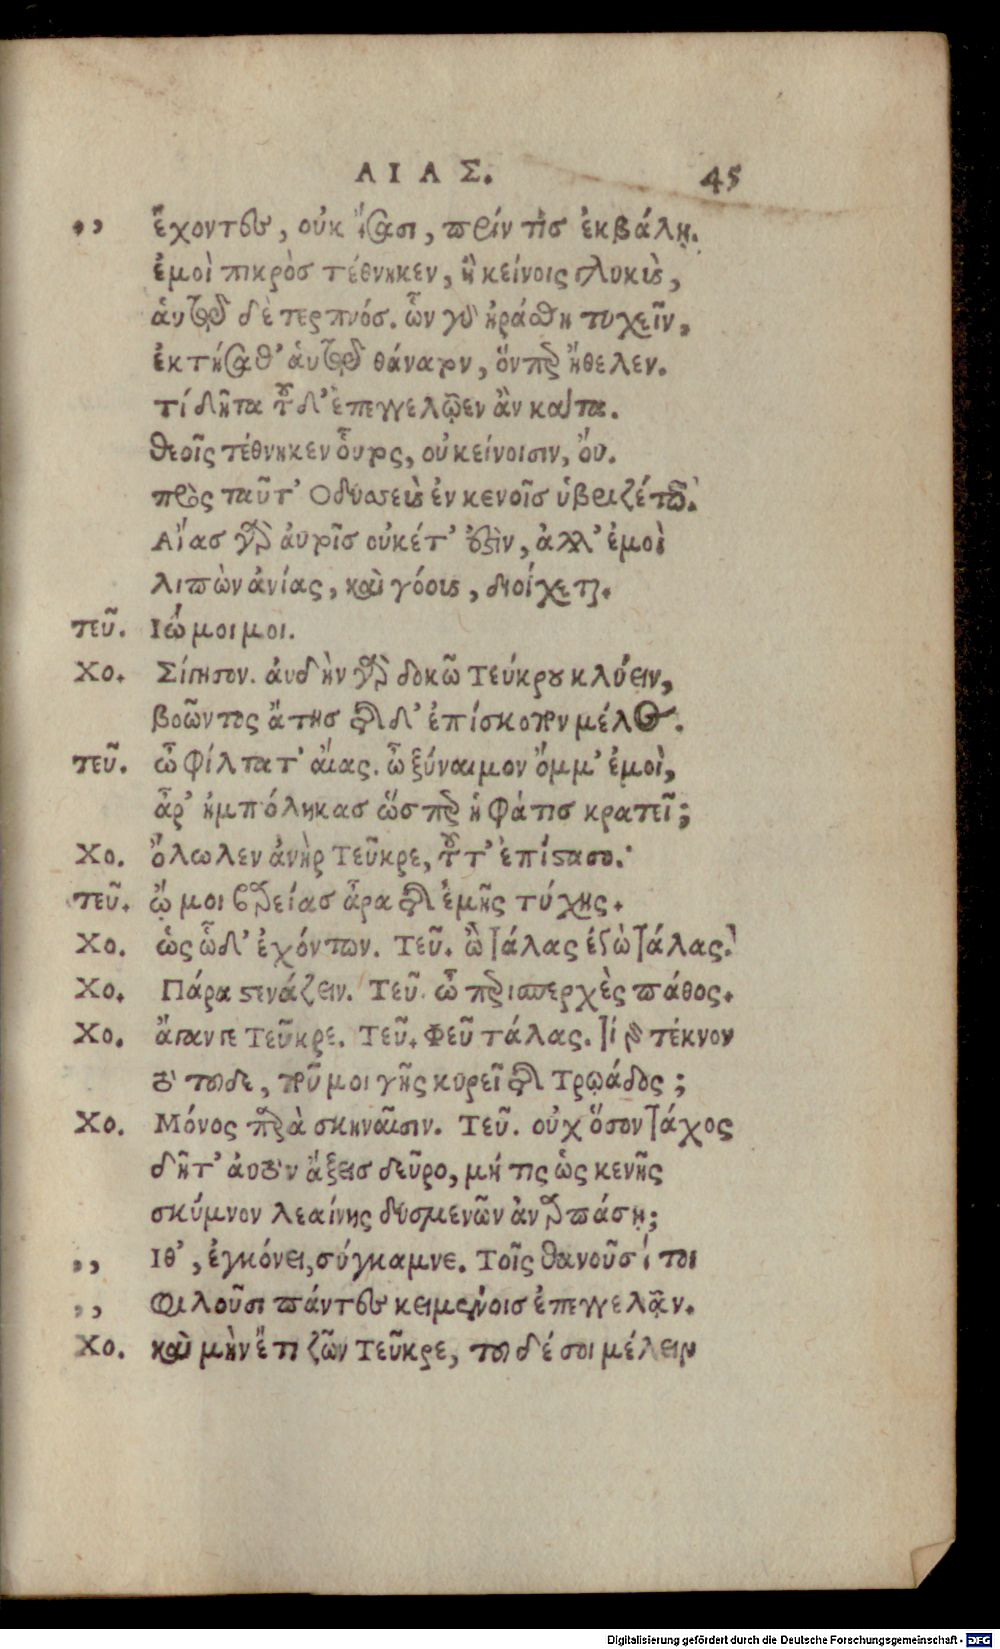 ΑΙΑΣ. 45
,, ἔχοντες, οὐκ ἴσασι, πρίν τὶς ἐκβάλῃ.
ἐμοὶ πικρὸς τέθνηκεν, ἢ κείνοις γλυκὺς,
αὑτῷ δὲ τερπνός. ὧν γὰρ ἠράσθη τυχεῖν,
ἐκτήσαθ' αὑτῷ θάνατον, ὅνπερ ἤθελεν.
τί δῆτα τοῦδ' ἐπεγγελῷεν ἂν κατα.
θεοῖς τέθνηκεν οὗτος, οὐ κείνοισιν, οὔ.
πρὸς ταῦτ' Ὀδυσσεὺς ἐν κενοῖς ὑβριζέτω.
Αἴας γὰρ αὐτοῖς οὐκέτ' ἐστὶν, ἀλλ' ἐμοὶ
λιπὼν ἀνίας, καὶ γόους, διοίχεται.
τεῦ. Ιώ μοι μοι.
Χο. Σίγησον. αὐδὴν γὰρ δοκῶ Τεύκρου κλύειν,
βοῶντος ἄτης τῆς δ' ἐπίσκοπον μέλος.
τεῦ. ὦ φίλτατ' αἴας. ὦ ξύναιμον ὄμμ' ἐμοὶ,
ἆρ' ἠμπόληκας ὥσπερ ἡ φάτις κρατεῖ;
Χο. ὄλωλεν ἁνὴρ Τεῦκρε, τοῦτ' ἐπίστασο.
τεῦ. ᾤ μοι βαρείας ἆρα τῆς ἐμῆς τύχης.
Χο. ὡς ὧδ' ἐχόντων. Τεῦ. ὢ τάλας ἐγὼ τάλας.
Χο. Πάρα στενάζειν. Τεῦ. ὦ περισπερχὲς πάθος.
Χο. ἄγαν γε Τεῦκρε. Τεῦ. Φεῦ τάλας. τί γὰρ τέκνον
τὸ τοῦδε, ποῦ μοι γῆς κυρεῖ τῆς Τρῳάδος;
Χο. Μόνος παρὰ σκηναῖσιν. Τεῦ. οὐχ ὅσον τάχος
δῆτ' αὐτὸν ἄξεις δεῦρο, μή τις ὡς κενῆς
σκύμνον λεαίνης δυσμενῶν ἀναρπάσῃ;
,, Ιθ', ἐγκόνει, σύγκαμνε. Τοῖς θανοῦσί τοι
,, φιλοῦσι πάντες κειμένοις ἐπεγγελᾷν.
Χο. καὶ μὴν ἔτι ζῶν Τεῦκρε, τοῦδέ σοι μέλειν
Digitalisierung gefördert durch die Deutsche Forschungsgemeinschaft - DFG